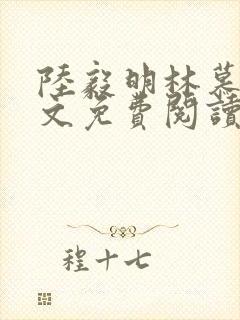 陸毅明林慕
文免費閱讀
程十七